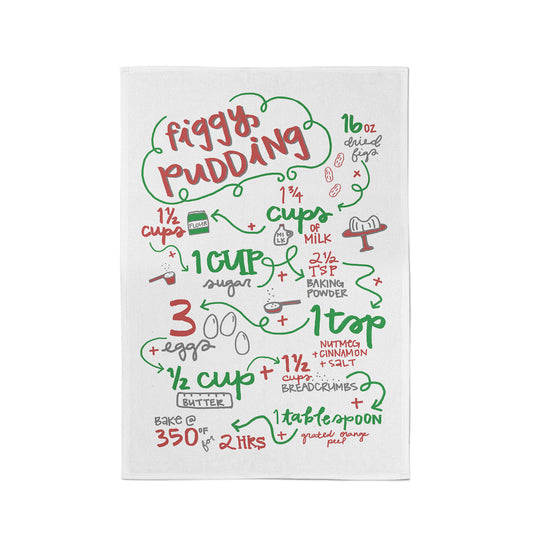 figgy
PUDDING
16 oz
dried
figs
1 3/4
cups
OF
MILK
MILK
1 1/2
cups
FLOUR
1 CUP
sugar
2 1/2
TSP
BAKING
POWDER
1 tsp
NUTMEG
+ CINNAMON
+ SALT
3
eggs
1/2 cup
BUTTER
1 1/2
cups
BREADCRUMBS
1 tablespoon
grated orange
peel
BAKE @
350°F
for
2 HRS